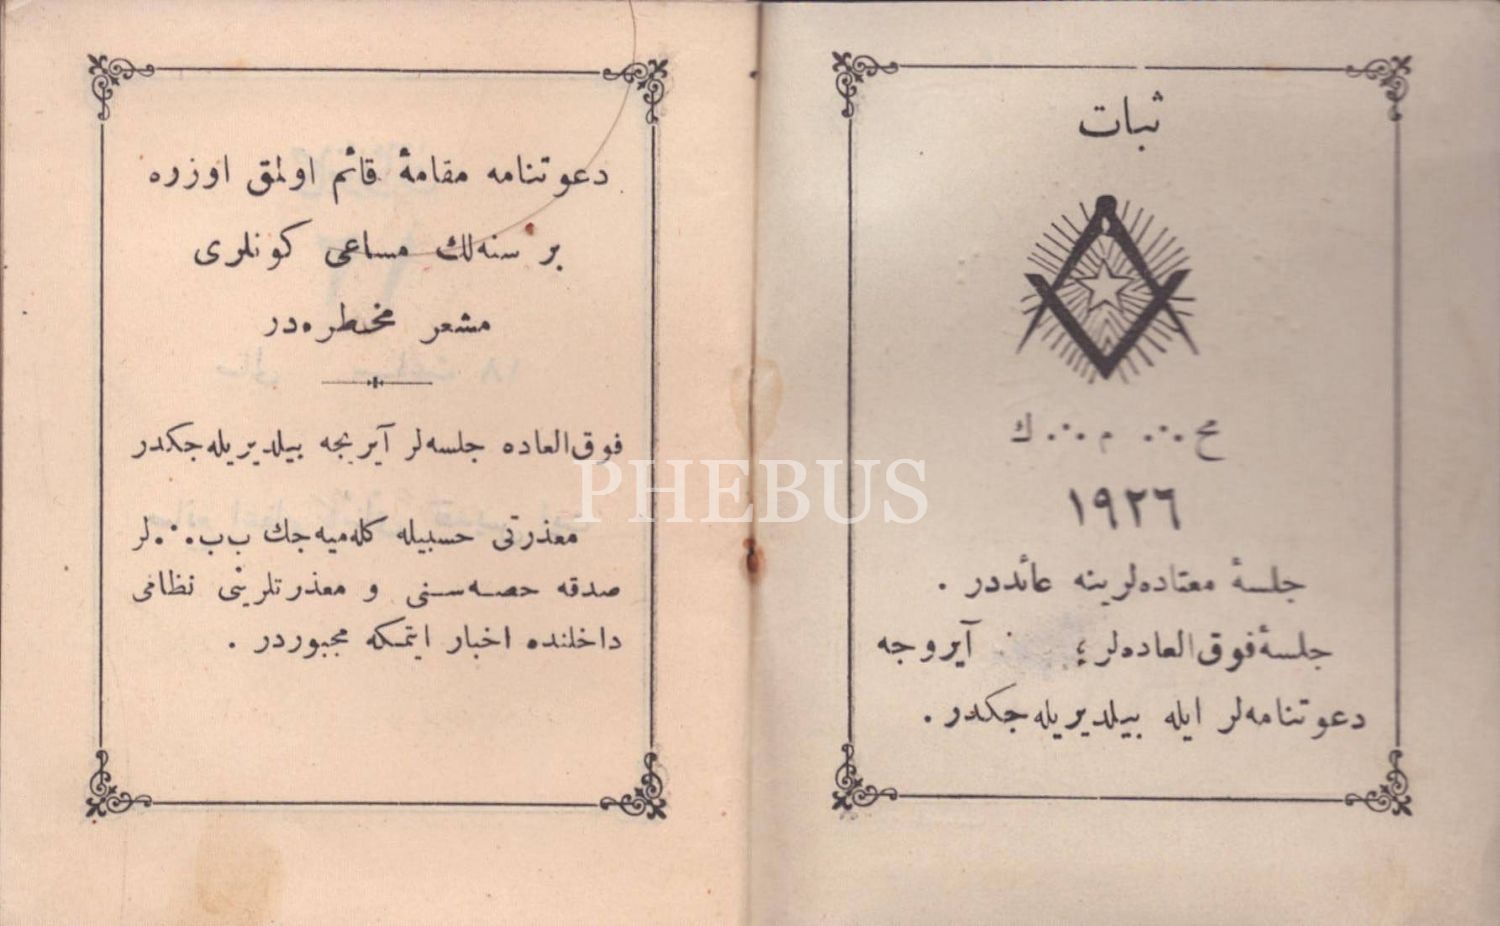 ثبات
مح∴ م∴ ك
١٩٢٦
جلسهٔ معتاده‌لرینه عائددر .
جلسهٔ فوق‌العاده‌لر ؛ آیروجه
دعوتنامه‌لر ایله بیلدیریله‌جكدر .
دعوتنامه مقامهٔ قائم اولمق اوزره
بر سنه‌لك مساعی كونلری
مشعر مخطره‌در
فوق‌العاده جلسه‌لر آیریجه بیلدیریله‌جكدر
معذرتی حسبیله كله‌میه‌جك ب‌ب∴لر
صدقه حصه‌سنی و معذرتلرینی نظامی
داخلنده اخبار ایتمكه مجبوردر .
PHEBUS